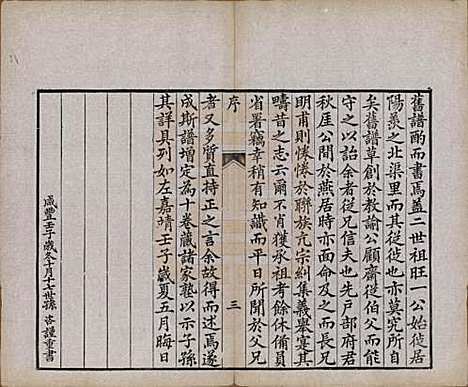 舊譜酌而書焉蓋二世祖旺一公始徙居
陽羨之北渠里而其從徙也亦莫究所自
矣舊譜草創於教諭公顧齋從伯父而能
守之以詒余者從兄信夫也先戶部府君
秋厓公閒於燕居時亦嘗志之而長兄
明甫則惓惓於聯族亢宗糾集義舉寔其
疇昔之志云爾不肖獲承祖考餘休備員
省署竊幸稍有知識而平日所聞於父兄
序
三
者又多質直持正之言余故得而述焉遂
成斯譜增定為十卷藏諸家塾以示子孫
其詳具列如左嘉靖壬子歲夏五月晦日
咸豐壬子歲冬十月十七世孫
重書